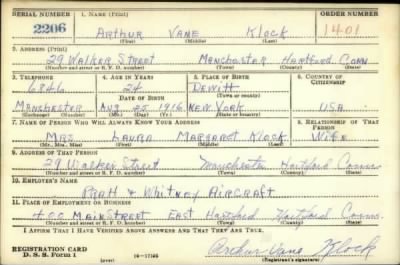 SERIAL NUMBER 1. NAME (Print) ORDER NUMBER
2206 ARTHUR VANE KLOCK 1401
(First) (Middle) (Last)
2. ADDRESS (Print)
29 WALKER STREET MANCHESTER HARTFORD CONN
(Number and street or R. F. D. number) (Town) (County) (State)
3. TELEPHONE 4. AGE IN YEARS 5. PLACE OF BIRTH 6. COUNTRY OF CITIZENSHIP
6846 24 DEWITT
DATE OF BIRTH (Town or county)
MANCHESTER AUG 25 1916 NEW YORK USA
(Exchange) (Number) (Mo.) (Day) (Yr.) (State or country)
7. NAME OF PERSON WHO WILL ALWAYS KNOW YOUR ADDRESS 8. RELATIONSHIP OF THAT PERSON
MRS LAURA MARGARET KLOCK WIFE
(Mr., Mrs., Miss) (First) (Middle) (Last)
9. ADDRESS OF THAT PERSON
29 Walker Street Manchester Hartford Conn
(Number and street or R. F. D. number) (Town) (County) (State)
10. EMPLOYER'S NAME
PRATT & WHITNEY AIRCRAFT
11. PLACE OF EMPLOYMENT OR BUSINESS
400 MAIN STREET EAST HARTFORD HARTFORD Conn.
(Number and street or R. F. D. number) (Town) (County) (State)
I AFFIRM THAT I HAVE VERIFIED ABOVE ANSWERS AND THAT THEY ARE TRUE.
REGISTRATION CARD
D. S. S. Form 1 (over) Arthur Vane Klock
(Registrant's signature)